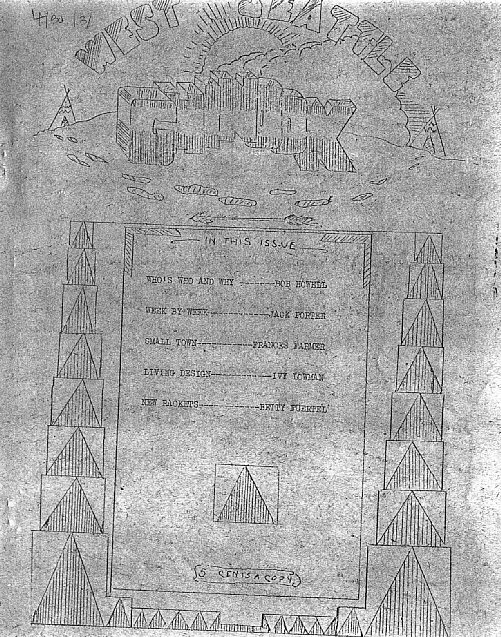 WEST SEATTLE
IN THIS ISSUE
WHO'S WHO AND WHY -------BOB HOWELL
WEEK BY WEEK------------JACK PORTER
SMALL TOWN-----------FRANCES FARMER
LIVING DESIGN------------IVY LOWMAN
NEW RACKETS------------BETTY
5 CENTS A COPY